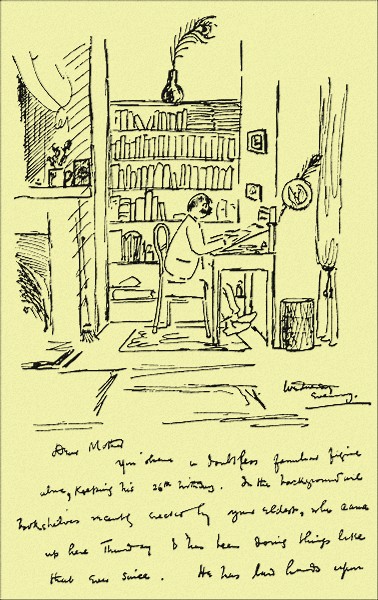 Wednesday
Evening.
Dear Mother
You have a doubtless familiar figure
above, keeping his 26th birthday. In the background are
bookshelves recently erected by your eldest, who came
up here Thursday & has been doing things like
that ever since. He has laid hands upon